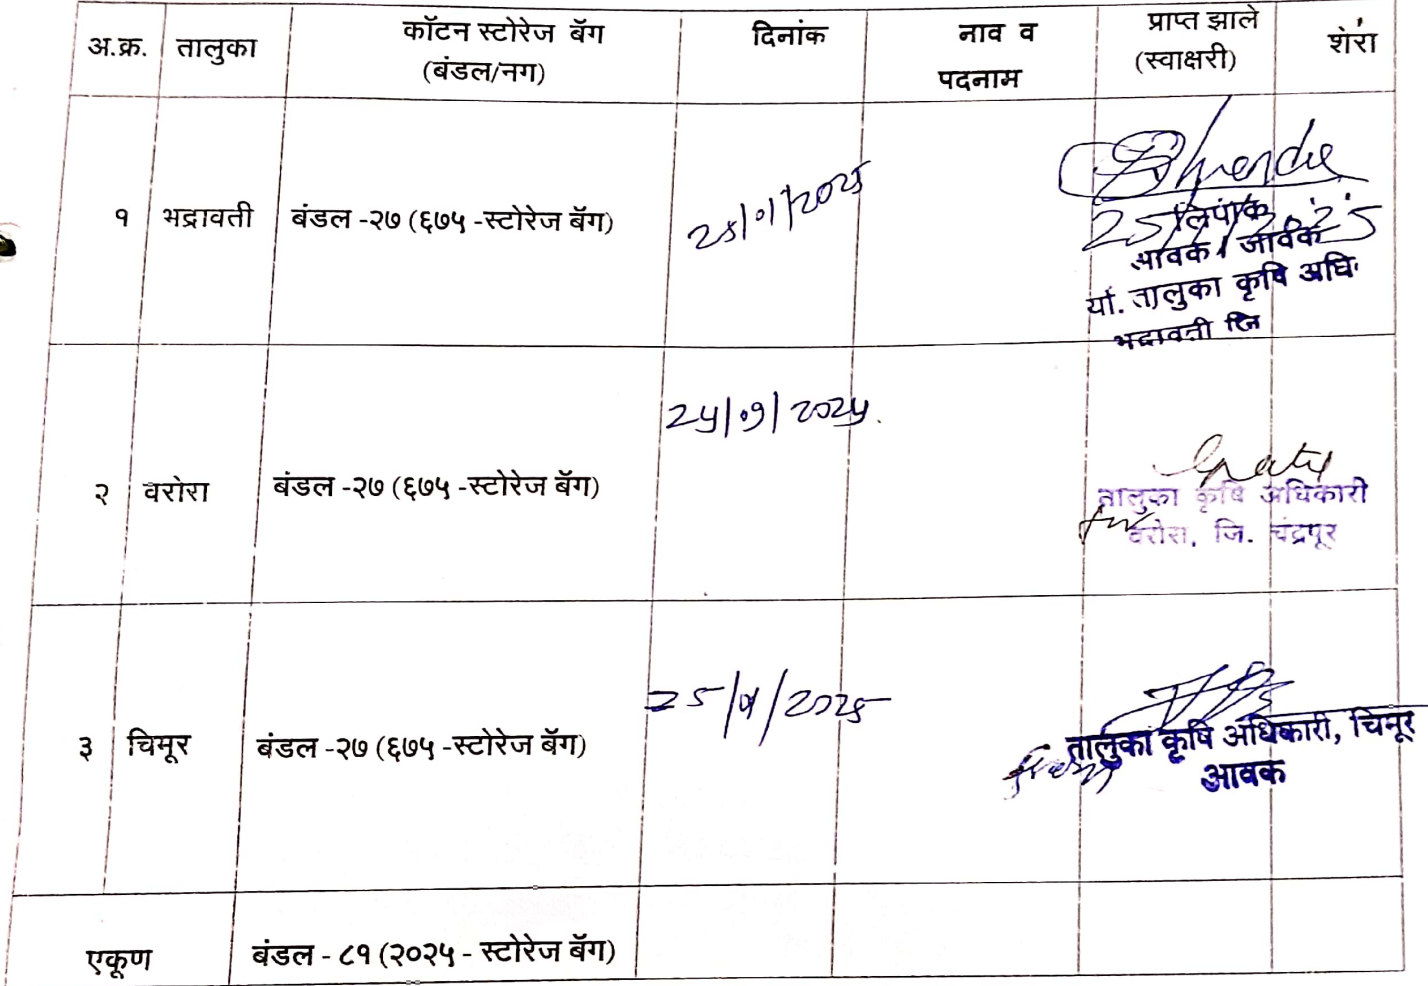 अ.क्र. तालुका कॉटन स्टोरेज बॅग (बंडल/नग) दिनांक नाव व पदनाम प्राप्त झाले (स्वाक्षरी) शेरा
१ भद्रावती बंडल -२७ (६७५ -स्टोरेज बॅग)
25/1/2025
लिपीक
आवक / जावक
यो. तालुका कृषि अधि.
भद्रावती जि
२ वरोरा बंडल -२७ (६७५ -स्टोरेज बॅग) 2५/०१/ २०२५.
तालुका कृषि अधिकारी
for वरोरा, जि. चंद्रपूर
३ चिमूर बंडल -२७ (६७५ -स्टोरेज बॅग)
तालुका कृषि अधिकारी, चिमूर
आवक
एकूण बंडल - ८१ (२०२५ - स्टोरेज बॅग)